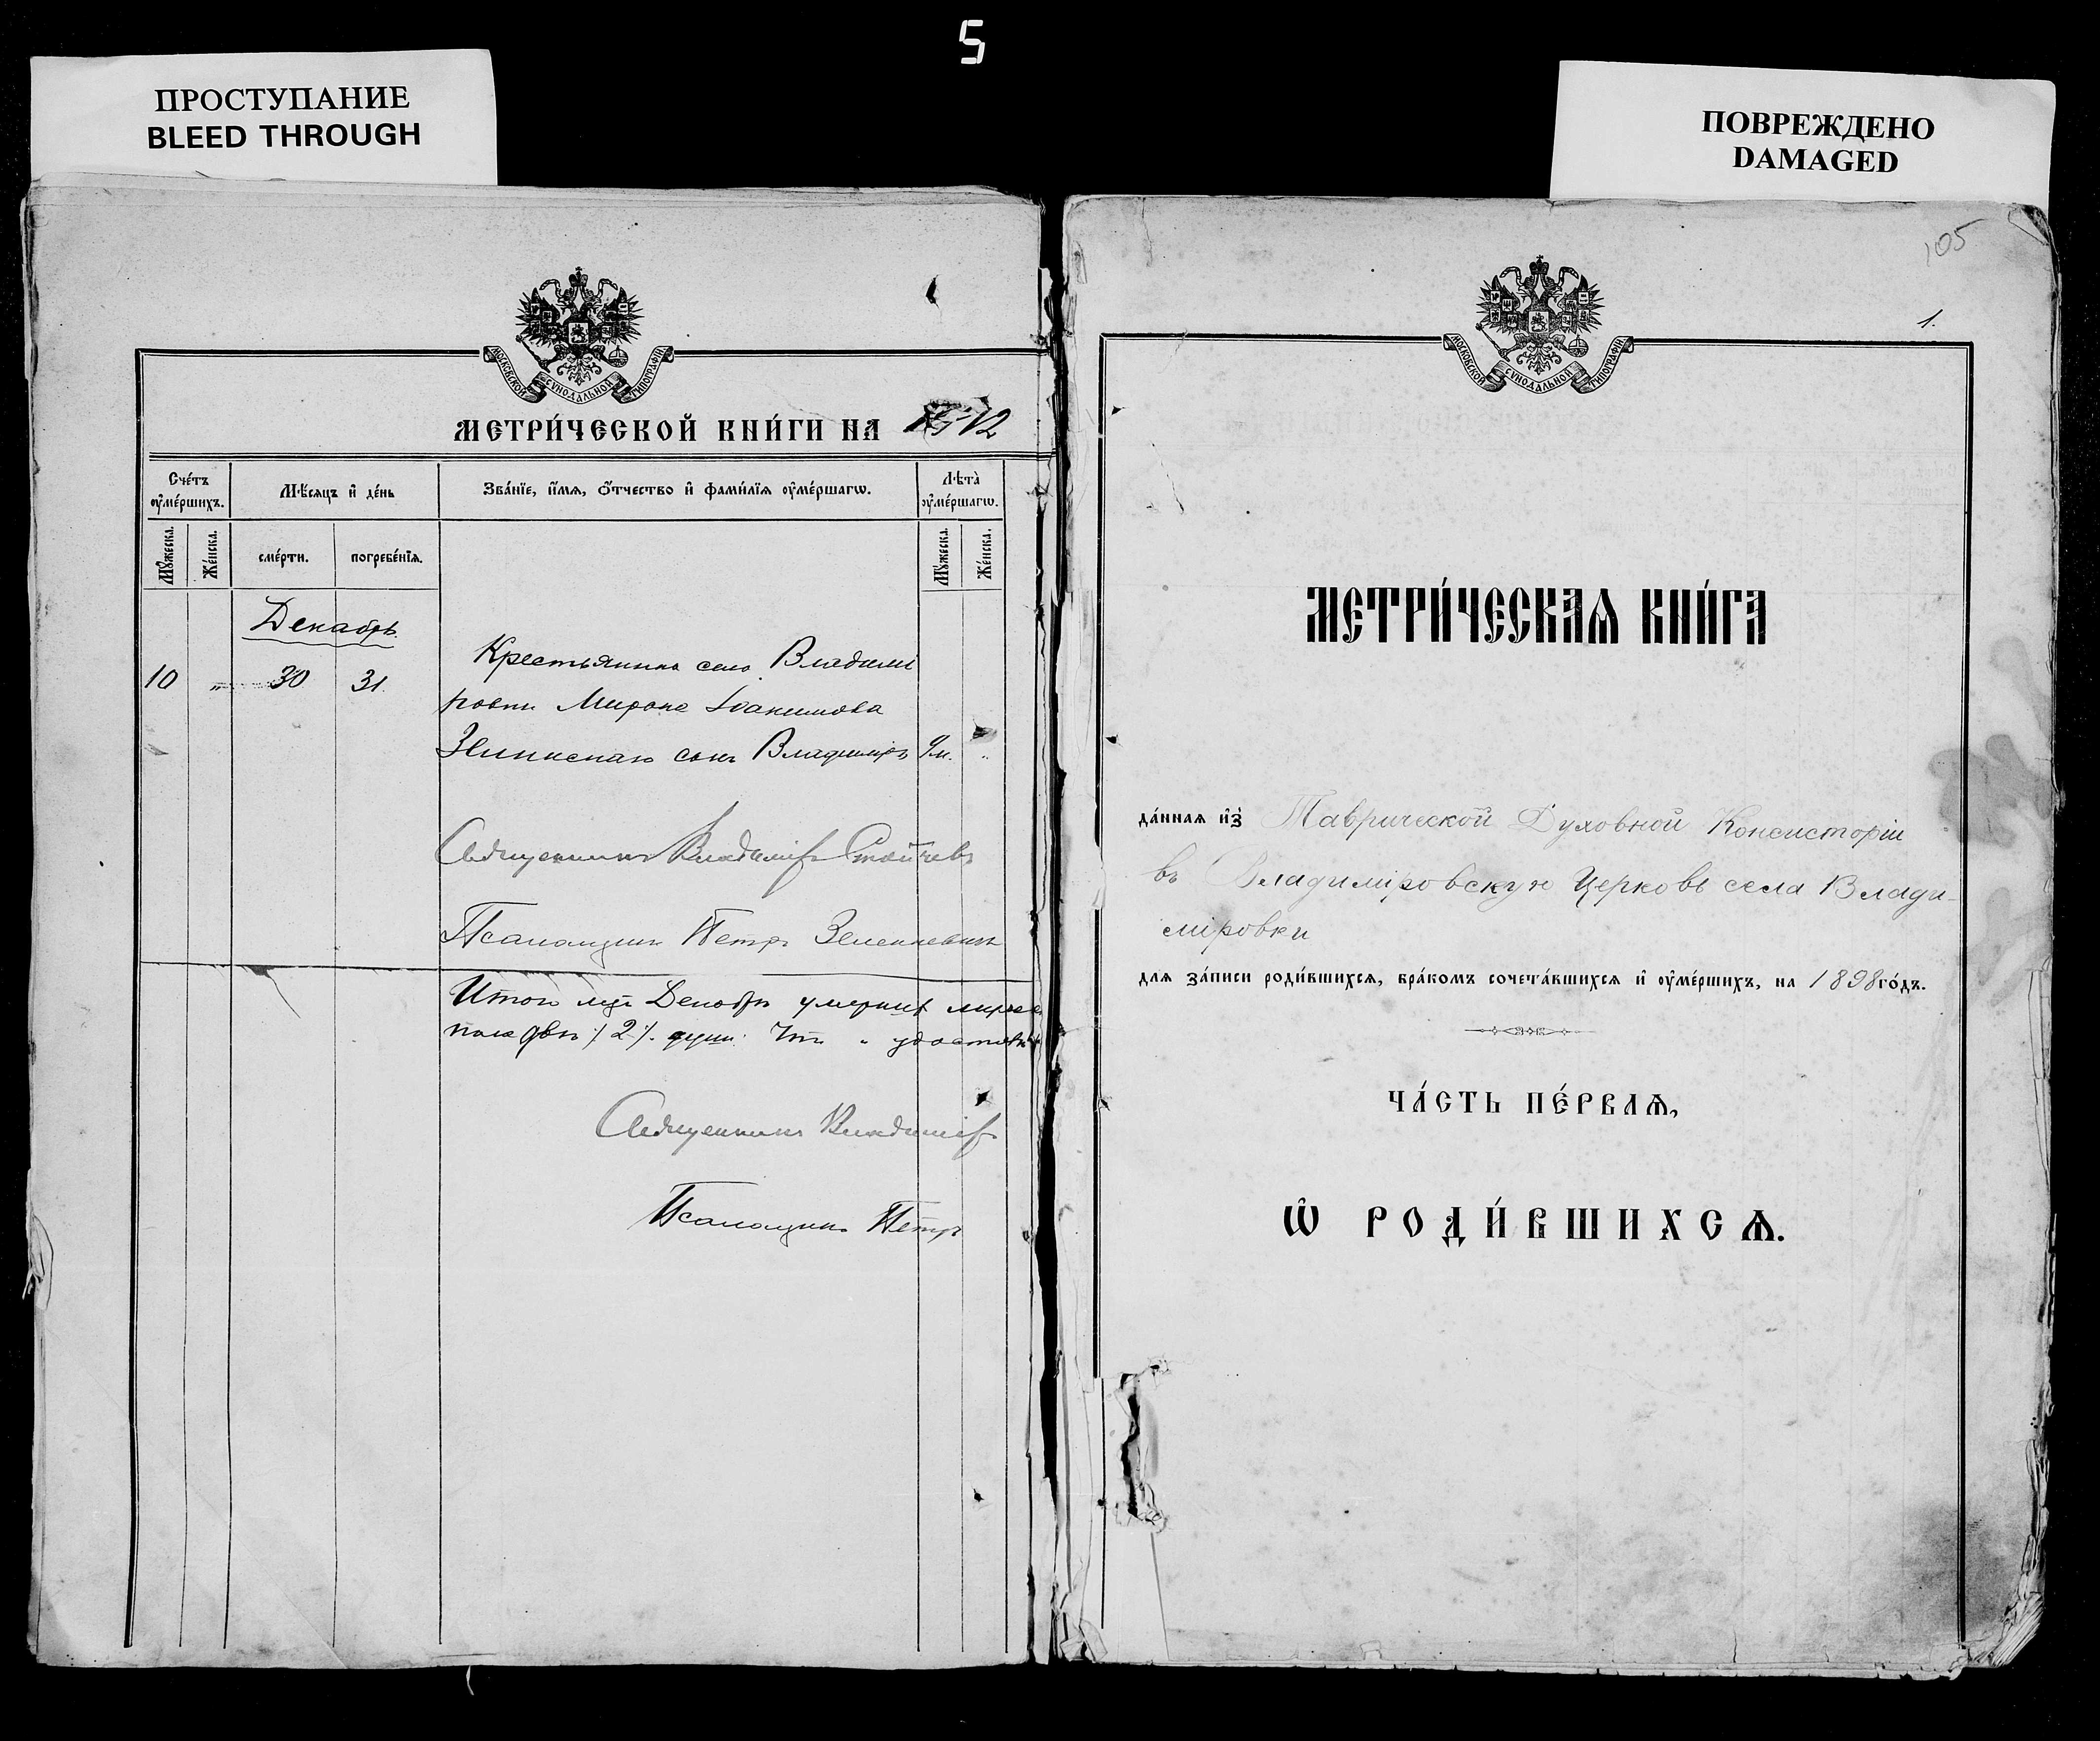 5
ПРОСТУПАНИЕ
BLEED THROUGH
ПОВРЕЖДЕНО
DAMAGED
МОСКОВСКОЙ СУНОДАЛЬНОЙ ТИПОГРАФІИ
МЕТРИ́ЧЕСКОЙ КНИ́ГИ НА
Сче́тъ ѹ҆ме́ршихъ.
Мѣ́сяцъ и҆ де́нь
Зва́нїе, и҆́мѧ, ѻ҆́тчество и҆ фами́лїѧ ѹ҆ме́ршагѡ.
Лѣта̀ ѹ҆ме́ршагѡ.
Мꙋ́жеска.
Же́нска.
сме́рти.
погребе́нїѧ.
Мꙋ́жеска.
Же́нска.
Декабрь.
Крестьянина села Владимі
10 „ 30 31
ровки Мирона Іоакимова
сынъ Владиміръ
Священникъ Владиміръ
Псаломщикъ Петръ
Итого Декабрѣ умерших
пола двѣ /2/. души.
Священникъ Владимір
Псаломщикъ Петръ
105
1.
МОСКОВСКОЙ СУНОДАЛЬНОЙ ТИПОГРАФІИ
МЕТРИ́ЧЕСКАѦ КНИ́ГА
да́ннаѧ и҆з̾ Таврической Духовной Консисторіи
въ Владиміровскую Церковь села Влади-
міровки
длѧ за́писи роди́вшихсѧ, бра́комъ сочета́вшихсѧ и҆ ѹ҆ме́ршихъ, на 1898 го́дъ.
ЧА́СТЬ ПЕ́РВАѦ,
Ѡ҆ РОДИ́ВШИХСѦ.